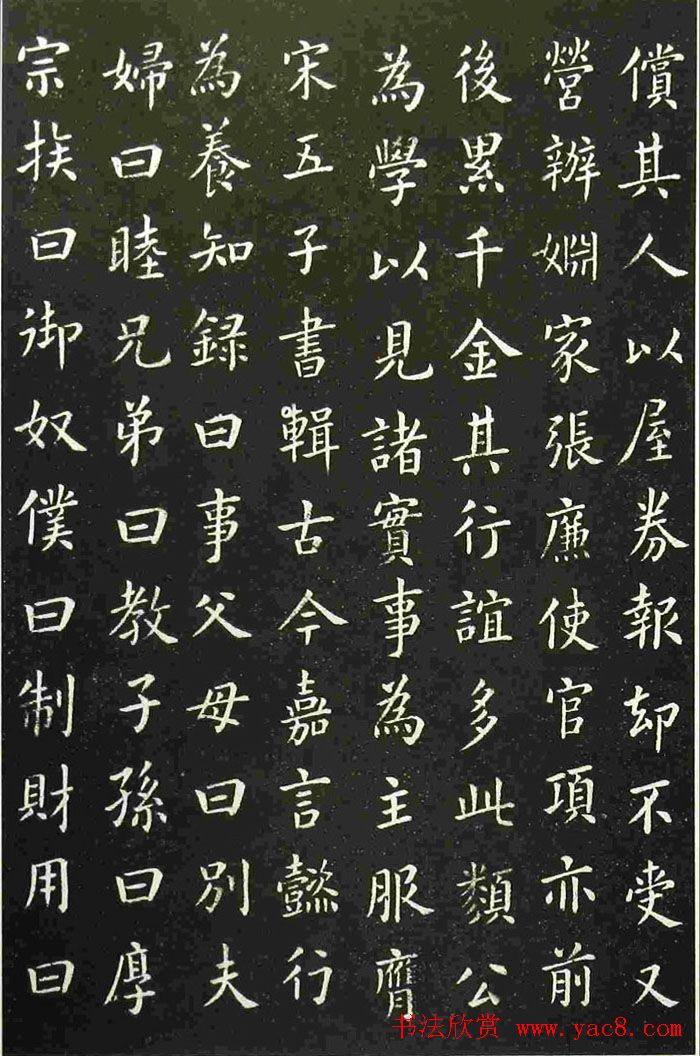 償其人以屋券報却不受又
營辦婣家張廉使官項亦前
後累千金其行誼多此類公
為學以見諸實事為主服膺
宋五子書輯古今嘉言懿行
為養知録曰事父母曰別夫
婦曰睦兄弟曰教子孫曰厚
宗族曰御奴僕曰制財用曰
书法欣赏 www.yac8.com